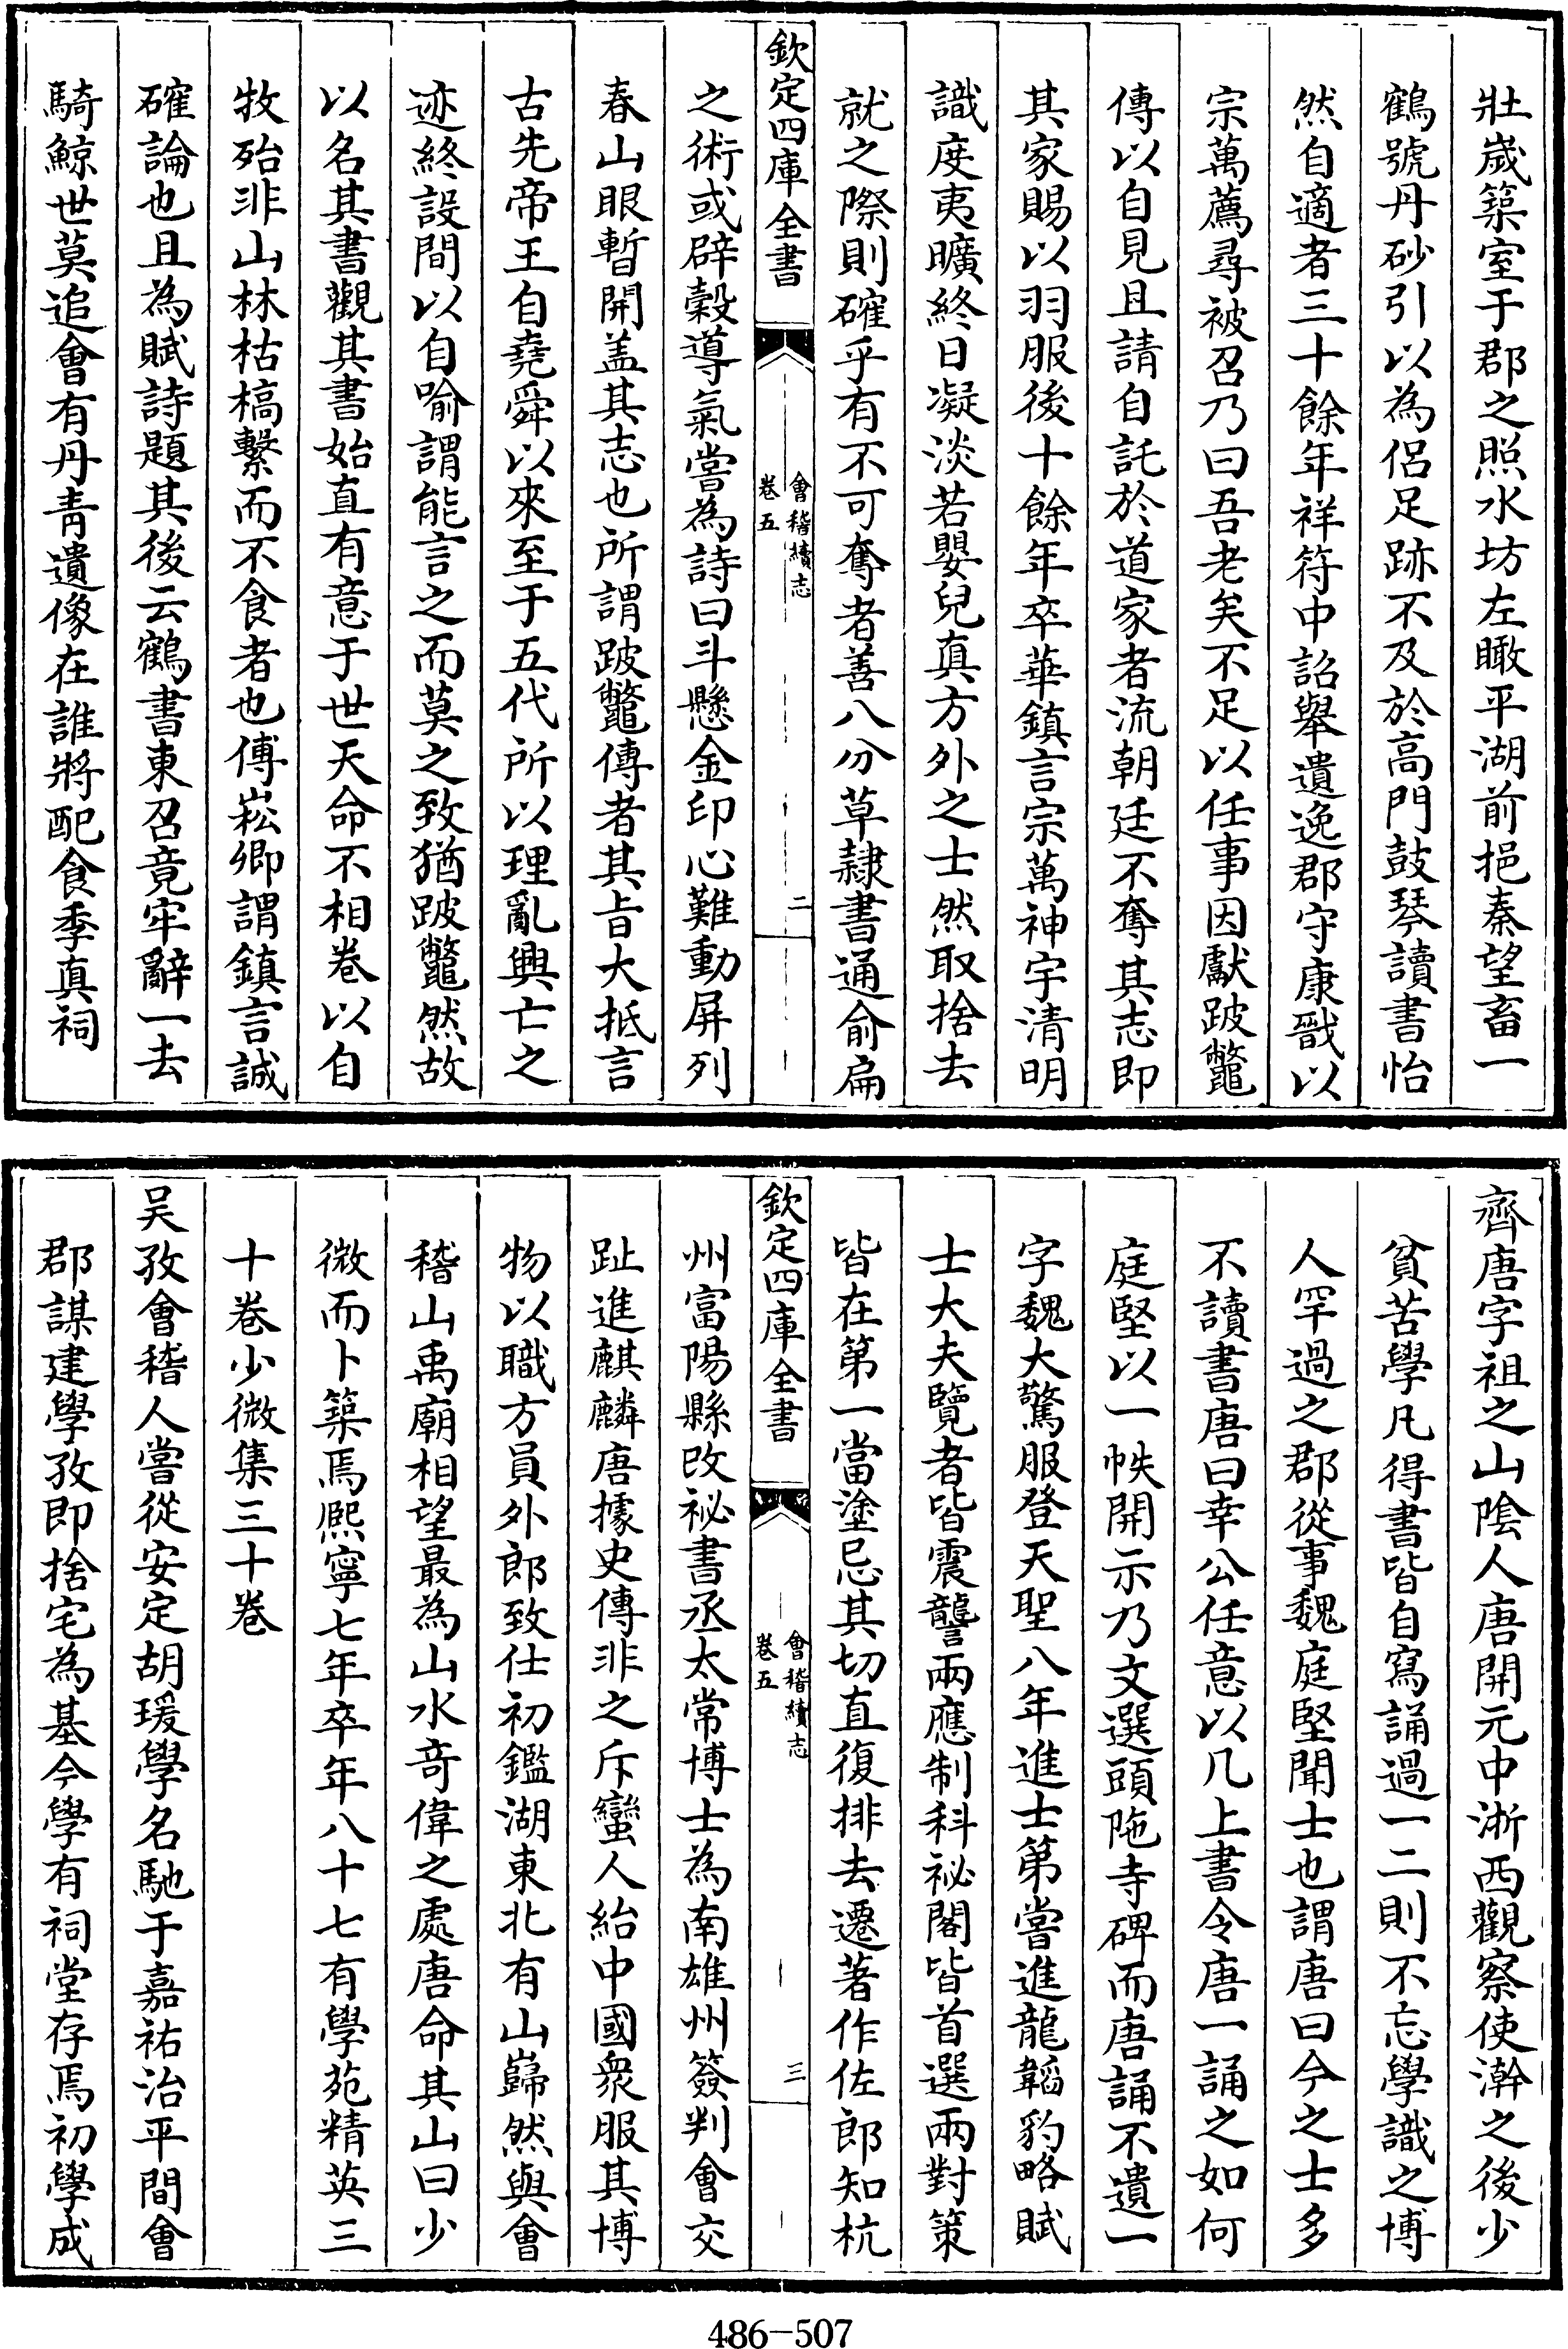 壯歲築室于郡之照水坊左瞰平湖前挹秦望畜一
鶴號丹砂引以為侣足跡不及於高門鼓琴讀書怡
然自適者三十餘年祥符中詔舉遺逸郡守康戩以
宗萬薦尋被召乃曰吾老矣不足以任事因獻跛鼈
傳以自見且請自託於道家者流朝廷不奪其志即
其家賜以羽服後十餘年卒華鎮言宗萬神宇清明
識度夷曠終日凝淡若嬰兒真方外之士然取捨去
就之際則確乎有不可奪者善八分草隸書通俞扁
欽定四庫全書
會稽續志
卷五
二
之術或辟穀導氣嘗為詩曰斗懸金印心難動屏列
春山眼暫開盖其志也所謂跛鼈傳者其㫖大抵言
古先帝王自堯舜以來至于五代所以理亂興亡之
迹終設間以自喻謂能言之而莫之致猶跛鼈然故
以名其書觀其書始直有意于世天命不相卷以自
牧殆非山林枯槁繫而不食者也傅崧卿謂鎮言誠
確論也且為賦詩題其後云鶴書東召竟牢辭一去
騎鯨世莫追會有丹青遺像在誰將配食季真祠
齊唐字祖之山陰人唐開元中浙西觀察使澣之後少
貧苦學凡得書皆自寫誦過一二則不忘學識之博
人罕過之郡從事魏庭堅聞士也謂唐曰今之士多
不讀書唐曰幸公任意以几上書令唐一誦之如何
庭堅以一帙開示乃文選頭陁寺碑而唐誦不遺一
字魏大驚服登天聖八年進士第嘗進龍韜豹略賦
士大夫覽者皆震讋兩應制科祕閣皆首選兩對策
皆在第一當塗忌其切直復排去遷著作佐郎知杭
欽定四庫全書
會稽續志
卷五
三
州富陽縣改祕書丞太常博士為南雄州簽判會交
趾進麒麟唐據史傳非之斥蠻人紿中國衆服其博
物以職方員外郎致仕初鑑湖東北有山巋然與會
稽山禹廟相望最為山水竒偉之處唐命其山曰少
微而卜築焉熈寧七年卒年八十七有學苑精英三
十卷少微集三十卷
吴孜會稽人嘗從安定胡瑗學名馳于嘉祐治平間會
郡謀建學孜即捨宅為基今學有祠堂存焉初學成
486-507